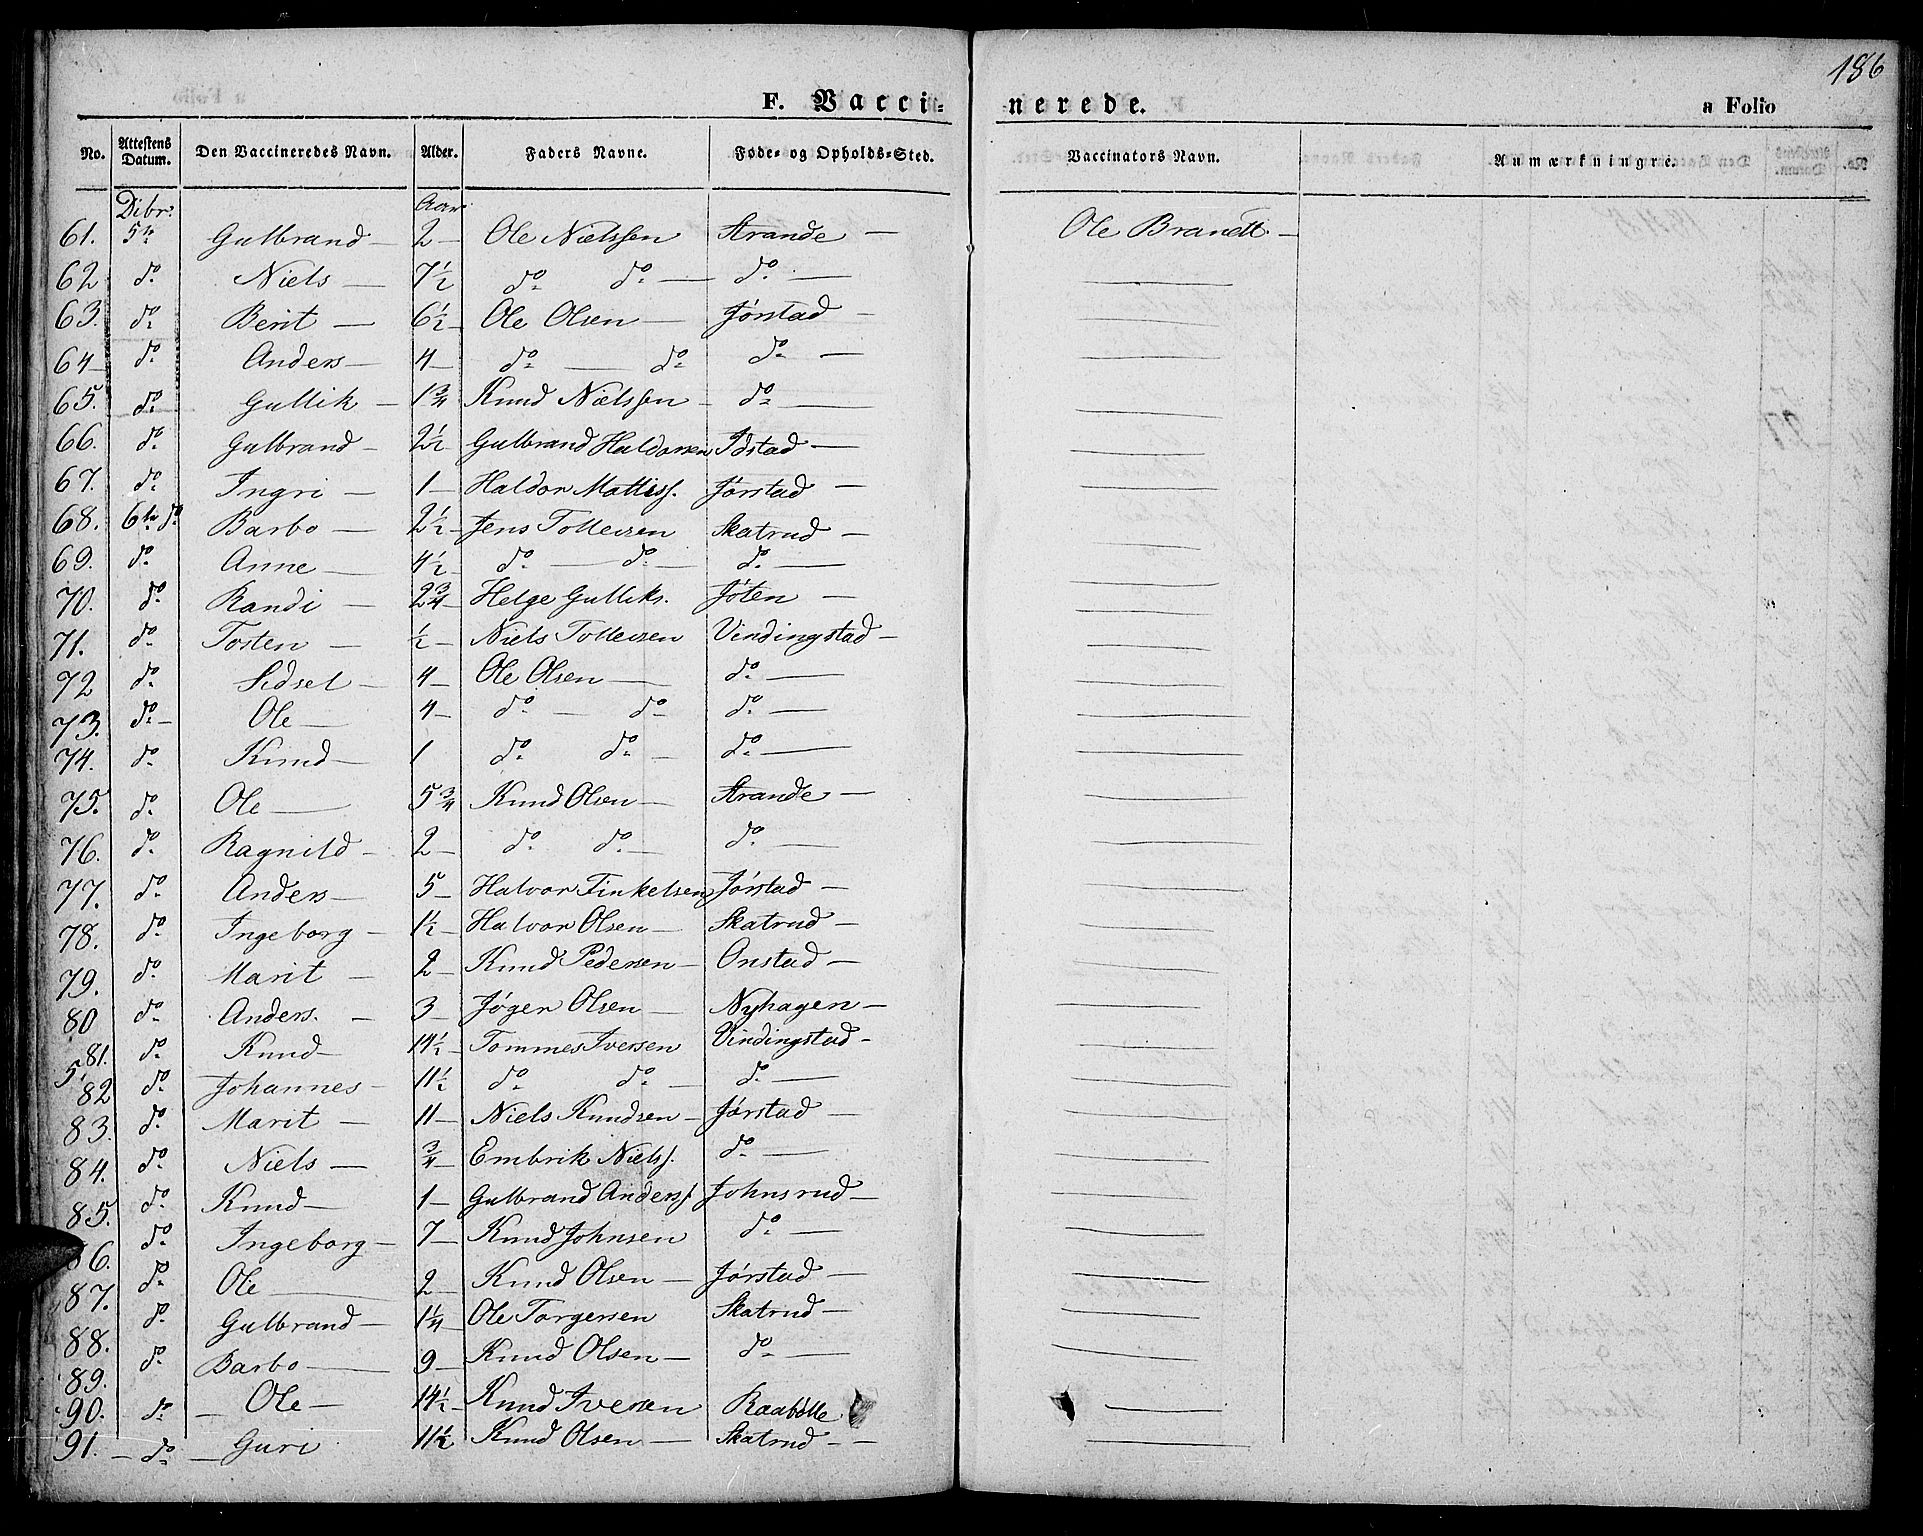 186
F. Vaccinerede. a Folio
No. Attestens Datum. Den Vaccineredes Navn. Alder. Faders Navne. Føde- og Opholds-Sted. Vaccinators Navn. Anmærkninger.
Dibr. Aar
61. 5te Gulbrand — 2 — Ole Nielssen Strande — Ole Branett. —
62 do Niels — 7½ do do — do —
63. do Berit — 6½ — Ole Olsen — Jørstad —
64 — do Anders — 4 — do — do do —
65. do Gullik — 1¾ Knud Nielssen — do —
66. do Gulbrand — 2½ Gulbrand Haldorsen Idstad —
67. do Ingri — 1 — Haldor Mattiss. Jørstad —
68. 6te do Barbo — 2½ — Jens Tolleivsen Skatrud —
69. do Anne — 4½ do — do — do —
70. do Randi — 2¾ — Helge Gulliks. Jøten —
71. do Tosten — ½ — Niels Tolleivsen Vindingstad —
72 do Sidsel — 4 — Ole Olsen — do —
73. do — Ole — 4 — do — do do —
74. do Knud — 1 do do — do —
75. do Ole — 5¾ Knud Olsen — Strande —
76. do Ragnild — 2 — do do — do —
77. do Anders — 5 — Halvor Finkelsen Jørstad —
78. do Ingeborg — 1½ — Halvor Olsen — Skatrud —
79. do Marit — 2 — Knud Pedersen — Onstad —
80 do Anders. — 3 — Jøger Olsen — Nyhagen —
81. do Knud — 14½ — Tommes Iversen Vindingstad —
5. 82 do Johannes — 11½ do do — do —
83. do Marit — 11 — Niels Knudsen — Jørstad —
84. do Niels — ¾ — Embrik Nielss. do —
85. do Knud — 1 — Gulbrand Anderss. Johnsrud —
86. do Ingeborg — 7 — Knud Johnsen do —
87. do Ole — 2 — Knud Olsen — Jørstad —
88. do Gulbrand — 1¼ — Ole Torgersen Skatrud —
89. do Barbo — 9 — Knud Olsen — do —
90. do — Ole — 14½ — Knud Iversen Raabølle
91. — do — Guri 11½ Knud Olsen — Skatrud — —